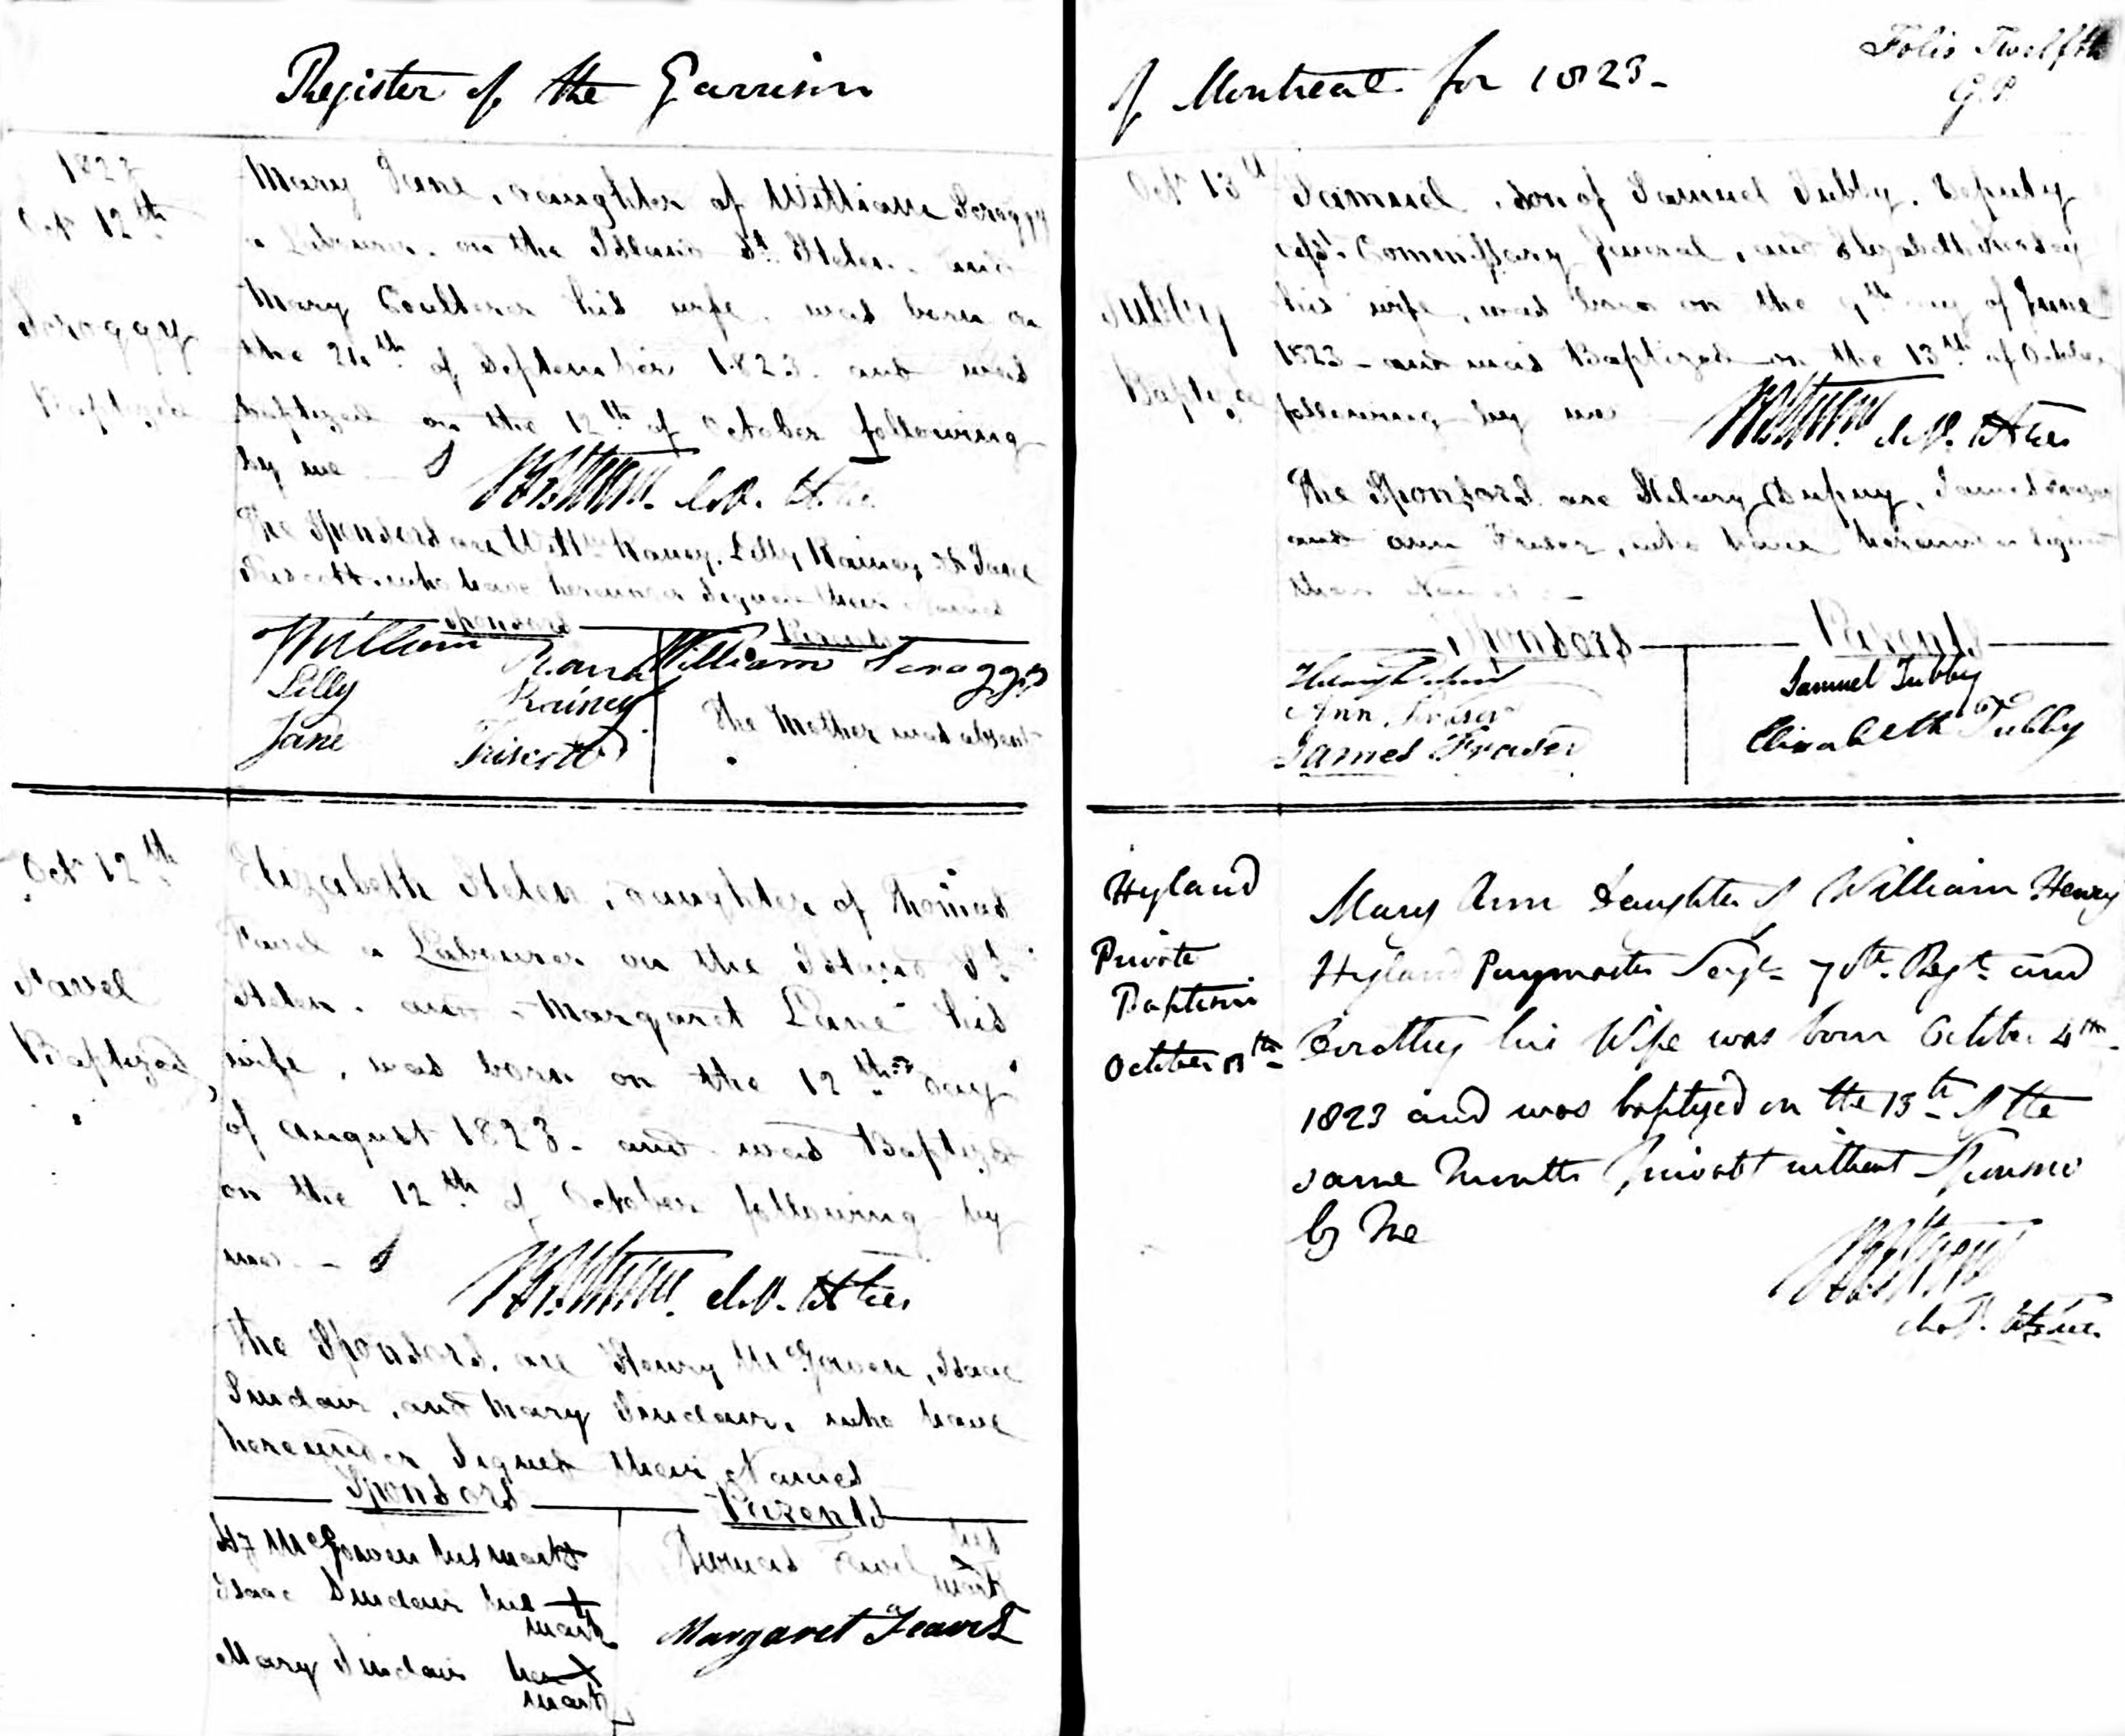 Register of the Garrison
1823
Octr 12th
Scroggy
Baptized
Mary Jane, daughter of William Scroggy
a Labourer on the Island St. Helen. and
Mary Coulter his wife, was born on
the 24th of September 1823. and was
baptized on the 12th of October following
by me
The Sponsors are Willm Raney, Lilly Rainey & Jane
who have hereunder signed their Names
Sponsors
Parents
William
Lilly Rainey
Jane
William Scroggy
The Mother was absent
Octr 12th
Baptized
Elizabeth Helen, daughter of Thomas
a Labourer on the Island St.
Helen. and Margaret Lane his
wife, was born on the 12th day
of August 1823. and was Baptized
on the 12th of October following by
me
The Sponsors, are Henry McGowen, Isaac
Sinclair, and Mary Sinclair, who have
hereunder Signed their Names
Sponsors
Parents
Hy McGowen his mark
Isaac Sinclair his + mark
Mary Sinclair her X mark
Thomas his mark
Margaret
of Montreal for 1823-
Folio Twelfth
G.P.
Octr 13th
Tubby
Baptized
Samuel, son of Samuel Tubby, Deputy
Asst. Commissary General, and Elizabeth
his wife, was born on the 9th day of June
1823 - and was Baptized on the 13th of October
following by me
The Sponsors are Henry Dupuy, James Fraser
and Ann Fraser, who have hereunder signed
their Names
Sponsors
Parents
Ann Fraser
James Fraser
Samuel Tubby
Elizabeth Tubby
Hyland
Private
Baptism
October 13th
Mary Ann Daughter of William Henry
Hyland Paymaster Sergt 70th Regt and
Dorothy his Wife was born October 4th
1823 and was baptized on the 13th of the
same Month privately without Sponsors
by Me